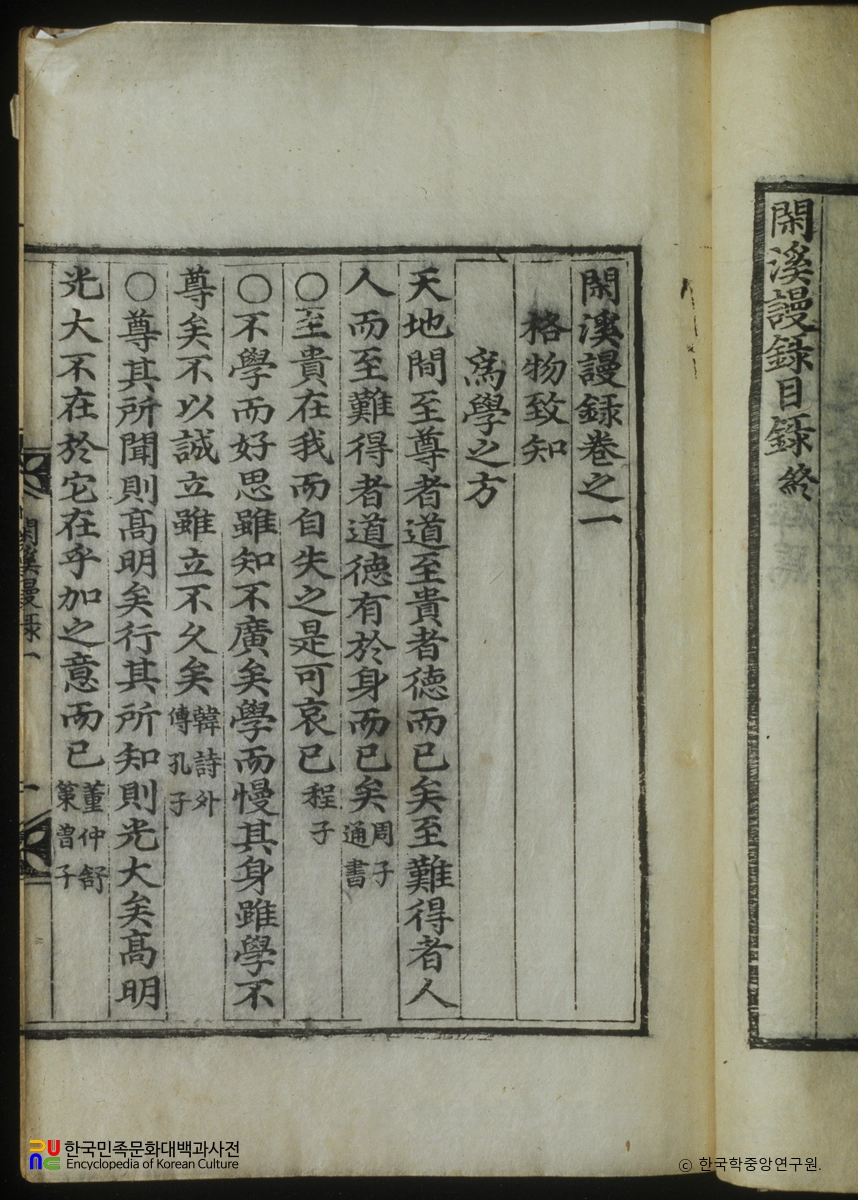 閑溪謾録目録 終
閑溪謾録卷之一
格物致知
爲學之方
天地間至尊者道至貴者德而已矣至難得者人
人而至難得者道德有於身而已矣 周子通書
〇至貴在我而自失之是可哀已 程子
〇不學而好思雖知不廣矣學而慢其身雖學不
尊矣不以誠立雖立不久矣 韓詩外傳孔子
〇尊其所聞則髙明矣行其所知則光大矣髙明
光大不在於它在乎加之意而已 董仲舒策曽子
閑溪謾録一
한국민족문화대백과사전
Encyclopedia of Korean Culture
© 한국학중앙연구원.